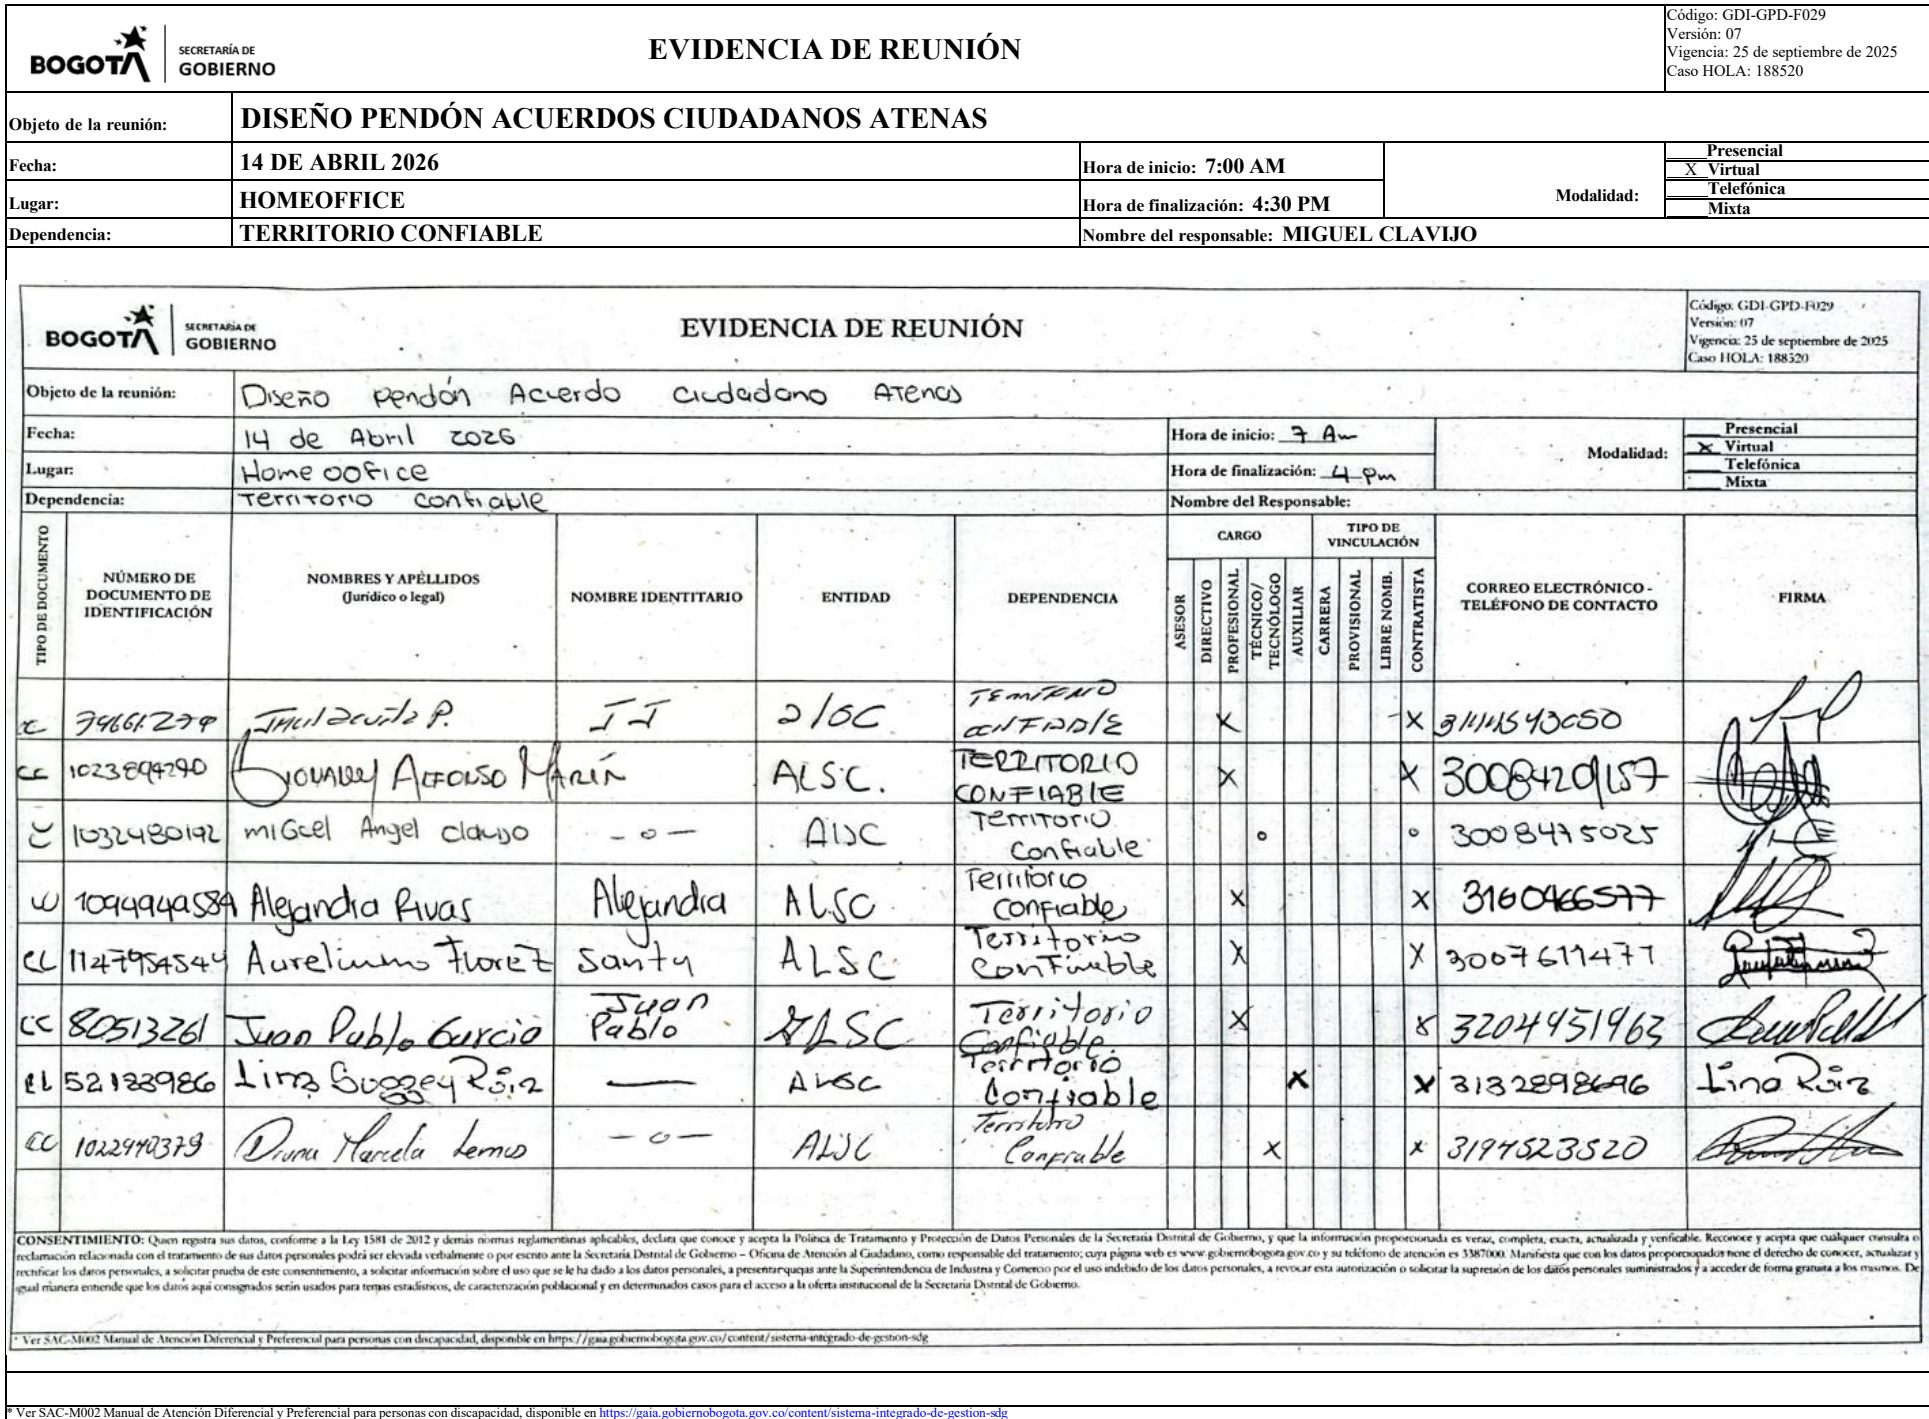 BOGOTÁ
SECRETARÍA DE
GOBIERNO
EVIDENCIA DE REUNIÓN
Código: GDI-GPD-F029
Versión: 07
Vigencia: 25 de septiembre de 2025
Caso HOLA: 188520
Objeto de la reunión: DISEÑO PENDÓN ACUERDOS CIUDADANOS ATENAS
Fecha: 14 DE ABRIL 2026 Hora de inicio: 7:00 AM
Lugar: HOMEOFFICE Hora de finalización: 4:30 PM
Modalidad:
Presencial
X Virtual
Telefónica
Mixta
Dependencia: TERRITORIO CONFIABLE Nombre del responsable: MIGUEL CLAVIJO
BOGOTÁ
SECRETARÍA DE
GOBIERNO
EVIDENCIA DE REUNIÓN
Código: GDI-GPD-F029
Versión: 07
Vigencia: 25 de septiembre de 2025
Caso HOLA: 188520
Objeto de la reunión: Diseño pendón Acuerdo Ciudadano Atenas
Fecha: 14 de Abril 2026 Hora de inicio: 7 Am
Lugar: Home oofice Hora de finalización: 4 pm
Modalidad:
Presencial
X Virtual
Telefónica
Mixta
Dependencia: Territorio Confiable Nombre del Responsable:
TIPO DE DOCUMENTO
NÚMERO DE
DOCUMENTO DE
IDENTIFICACIÓN
NOMBRES Y APÉLLIDOS
(Jurídico o legal)
NOMBRE IDENTITARIO
ENTIDAD
DEPENDENCIA
CARGO
ASESOR
DIRECTIVO
PROFESIONAL
TÉCNICO/
TECNÓLOGO
AUXILIAR
TIPO DE
VINCULACIÓN
CARRERA
PROVISIONAL
LIBRE NOMB.
CONTRATISTA
CORREO ELECTRÓNICO -
TELÉFONO DE CONTACTO
FIRMA
P. JJ X X
CC GIOVANNY ALFONSO MARÍN ALSC. TERRITORIO CONFIABLE X X 3008420157
1032480192 miGuel Angel clavijo - o - ALSC Territorio Confiable o o 3008475025
1094949584 Alejandra Rivas Alejandra ALSC Territorio Confiable X X 3160466577
1147954544 Aureliano Florez Santy ALSC Territorio Confiable X X 3007611477
CC 80513261 Juan Pablo Garcia Juan Pablo ALSC Territorio Confiable. X X 3204451963
52183986 Lina Ruiz — ALSC Territorio Confiable X X 3132898696 Lina Ruiz
CC 1022970379 Diana Marcela Lemus - o - ALSC Territorio Confiable X X 3194523520
CONSENTIMIENTO: Quien registra sus datos, conforme a la Ley 1581 de 2012 y demás normas reglamentarias aplicables, declara que conoce y acepta la Política de Tratamiento y Protección de Datos Personales de la Secretaría Distrital de Gobierno, y que la información proporcionada es veraz, completa, exacta, actualizada y verificable. Reconoce y acepta que cualquier consulta o
reclamación relacionada con el tratamiento de sus datos personales podrá ser elevada verbalmente o por escrito ante la Secretaría Distrital de Gobierno – Oficina de Atención al Ciudadano, como responsable del tratamiento; cuya página web es www.gobiernobogota.gov.co y su teléfono de atención es 3387000. Manifiesta que con los datos proporcionados tiene el derecho de conocer, actualizar y
rectificar los datos personales, a solicitar prueba de este consentimiento, a solicitar información sobre el uso que se le ha dado a los datos personales, a presentar quejas ante la Superintendencia de Industria y Comercio por el uso indebido de los datos personales, a revocar esta autorización o solicitar la supresión de los datos personales suministrados y a acceder de forma gratuita a los mismos. De
igual manera entiende que los datos aquí consignados serán usados para temas estadísticos, de caracterización poblacional y en determinados casos para el acceso a la oferta institucional de la Secretaría Distrital de Gobierno.
* Ver SAC-M002 Manual de Atención Diferencial y Preferencial para personas con discapacidad, disponible en https://gaia.gobiernobogota.gov.co/content/sistema-integrado-de-gestion-sdg
* Ver SAC-M002 Manual de Atención Diferencial y Preferencial para personas con discapacidad, disponible en https://gaia.gobiernobogota.gov.co/content/sistema-integrado-de-gestion-sdg